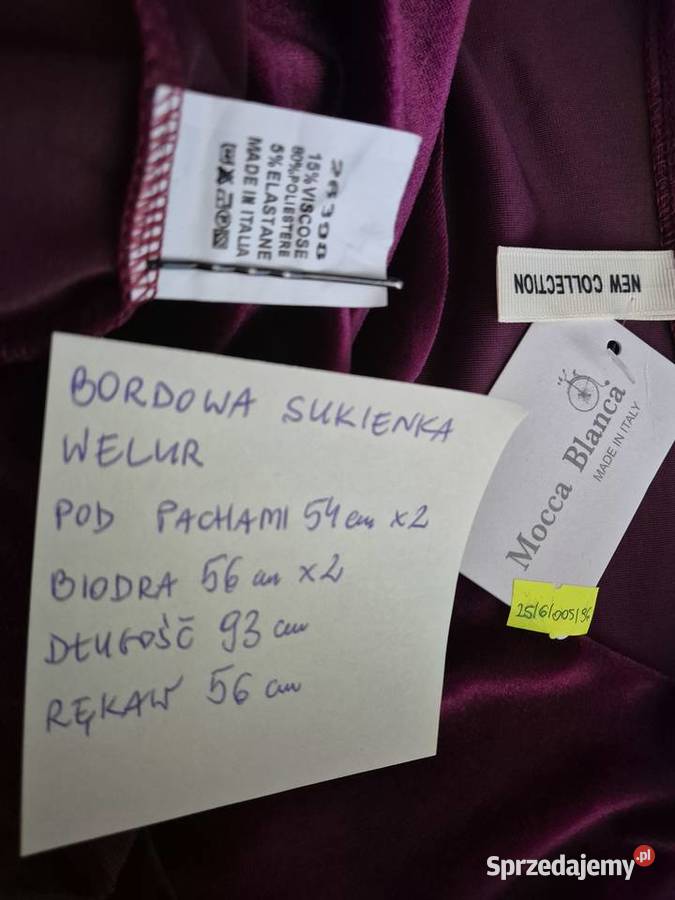 26398
15%VISCOSE
80%POLIESTERE
5%ELASTANE
MADE IN ITALIA
NEW COLLECTION
Mocca Blanca
MADE IN ITALY
25/6/005/96
BORDOWA SUKIENKA
WELUR
POD PACHAMI 54 cm x2
BIODRA 56 cm x2
DŁUGOŚĆ 93 cm
RĘKAW 56 cm
Sprzedajemy.pl